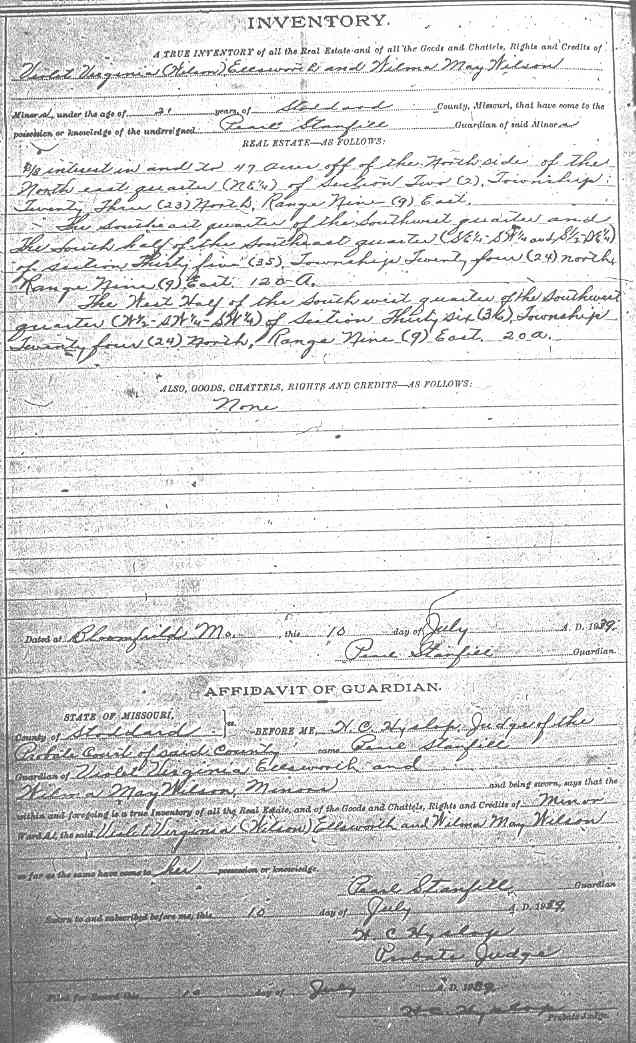 INVENTORY.
A TRUE INVENTORY of all the Real Estate and of all the Goods and Chattels, Rights and Credits of
Violet Virginia (Wilson) Ellsworth and Wilma May Wilson
Minors, under the age of 21 years, of Stoddard County, Missouri, that have come to the
possession or knowledge of the undersigned Pearl Stanfill Guardian of said Minors
REAL ESTATE—AS FOLLOWS:
interest in and to 47 acres off of the North side of the
North east quarter (NE¼) of Section Two (2), Township
Twenty Three (23) North, Range Nine (9) East.
The Southeast quarter of the Southwest quarter and
The South half of the Southeast quarter (SE¼-SW¼ and S½-SE¼)
of section Thirty five (35), Township Twenty four (24) north,
Range Nine (9) East. 120-A.
The West Half of the Southwest quarter of the Southwest
quarter (W½-SW¼-SW¼) of Section Thirty six (36), Township
Twenty four (24) North, Range Nine (9) East. 20 a.
ALSO, GOODS, CHATTELS, RIGHTS AND CREDITS—AS FOLLOWS:
None
Dated at Bloomfield Mo. , this 10 day of July A. D. 1939.
Pearl Stanfill Guardian.
AFFIDAVIT OF GUARDIAN.
STATE OF MISSOURI,
County of Stoddard } ss. BEFORE ME, H. C. Hyslop, Judge of the
Probate Court of said County came Pearl Stanfill
Guardian of Violet Virginia Ellsworth and
Wilma May Wilson, Minors and being sworn, says that the
within and foregoing is a true Inventory of all the Real Estate, and of the Goods and Chattels, Rights and Credits of Minor
Wards, the said Violet Virginia (Wilson) Ellsworth and Wilma May Wilson
so far as the same have come to her possession or knowledge.
Pearl Stanfill, Guardian
Sworn to and subscribed before me, this 10 day of July A. D. 1939.
H. C. Hyslop
Probate Judge
Filed for Record this 10 day of July A. D. 1939.
H. C. Hyslop
Probate Judge.